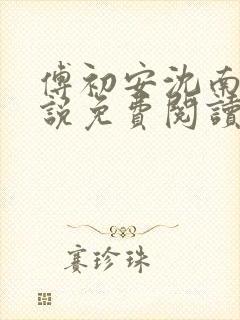 傅初安沈南
說免費閱讀
賽珍珠